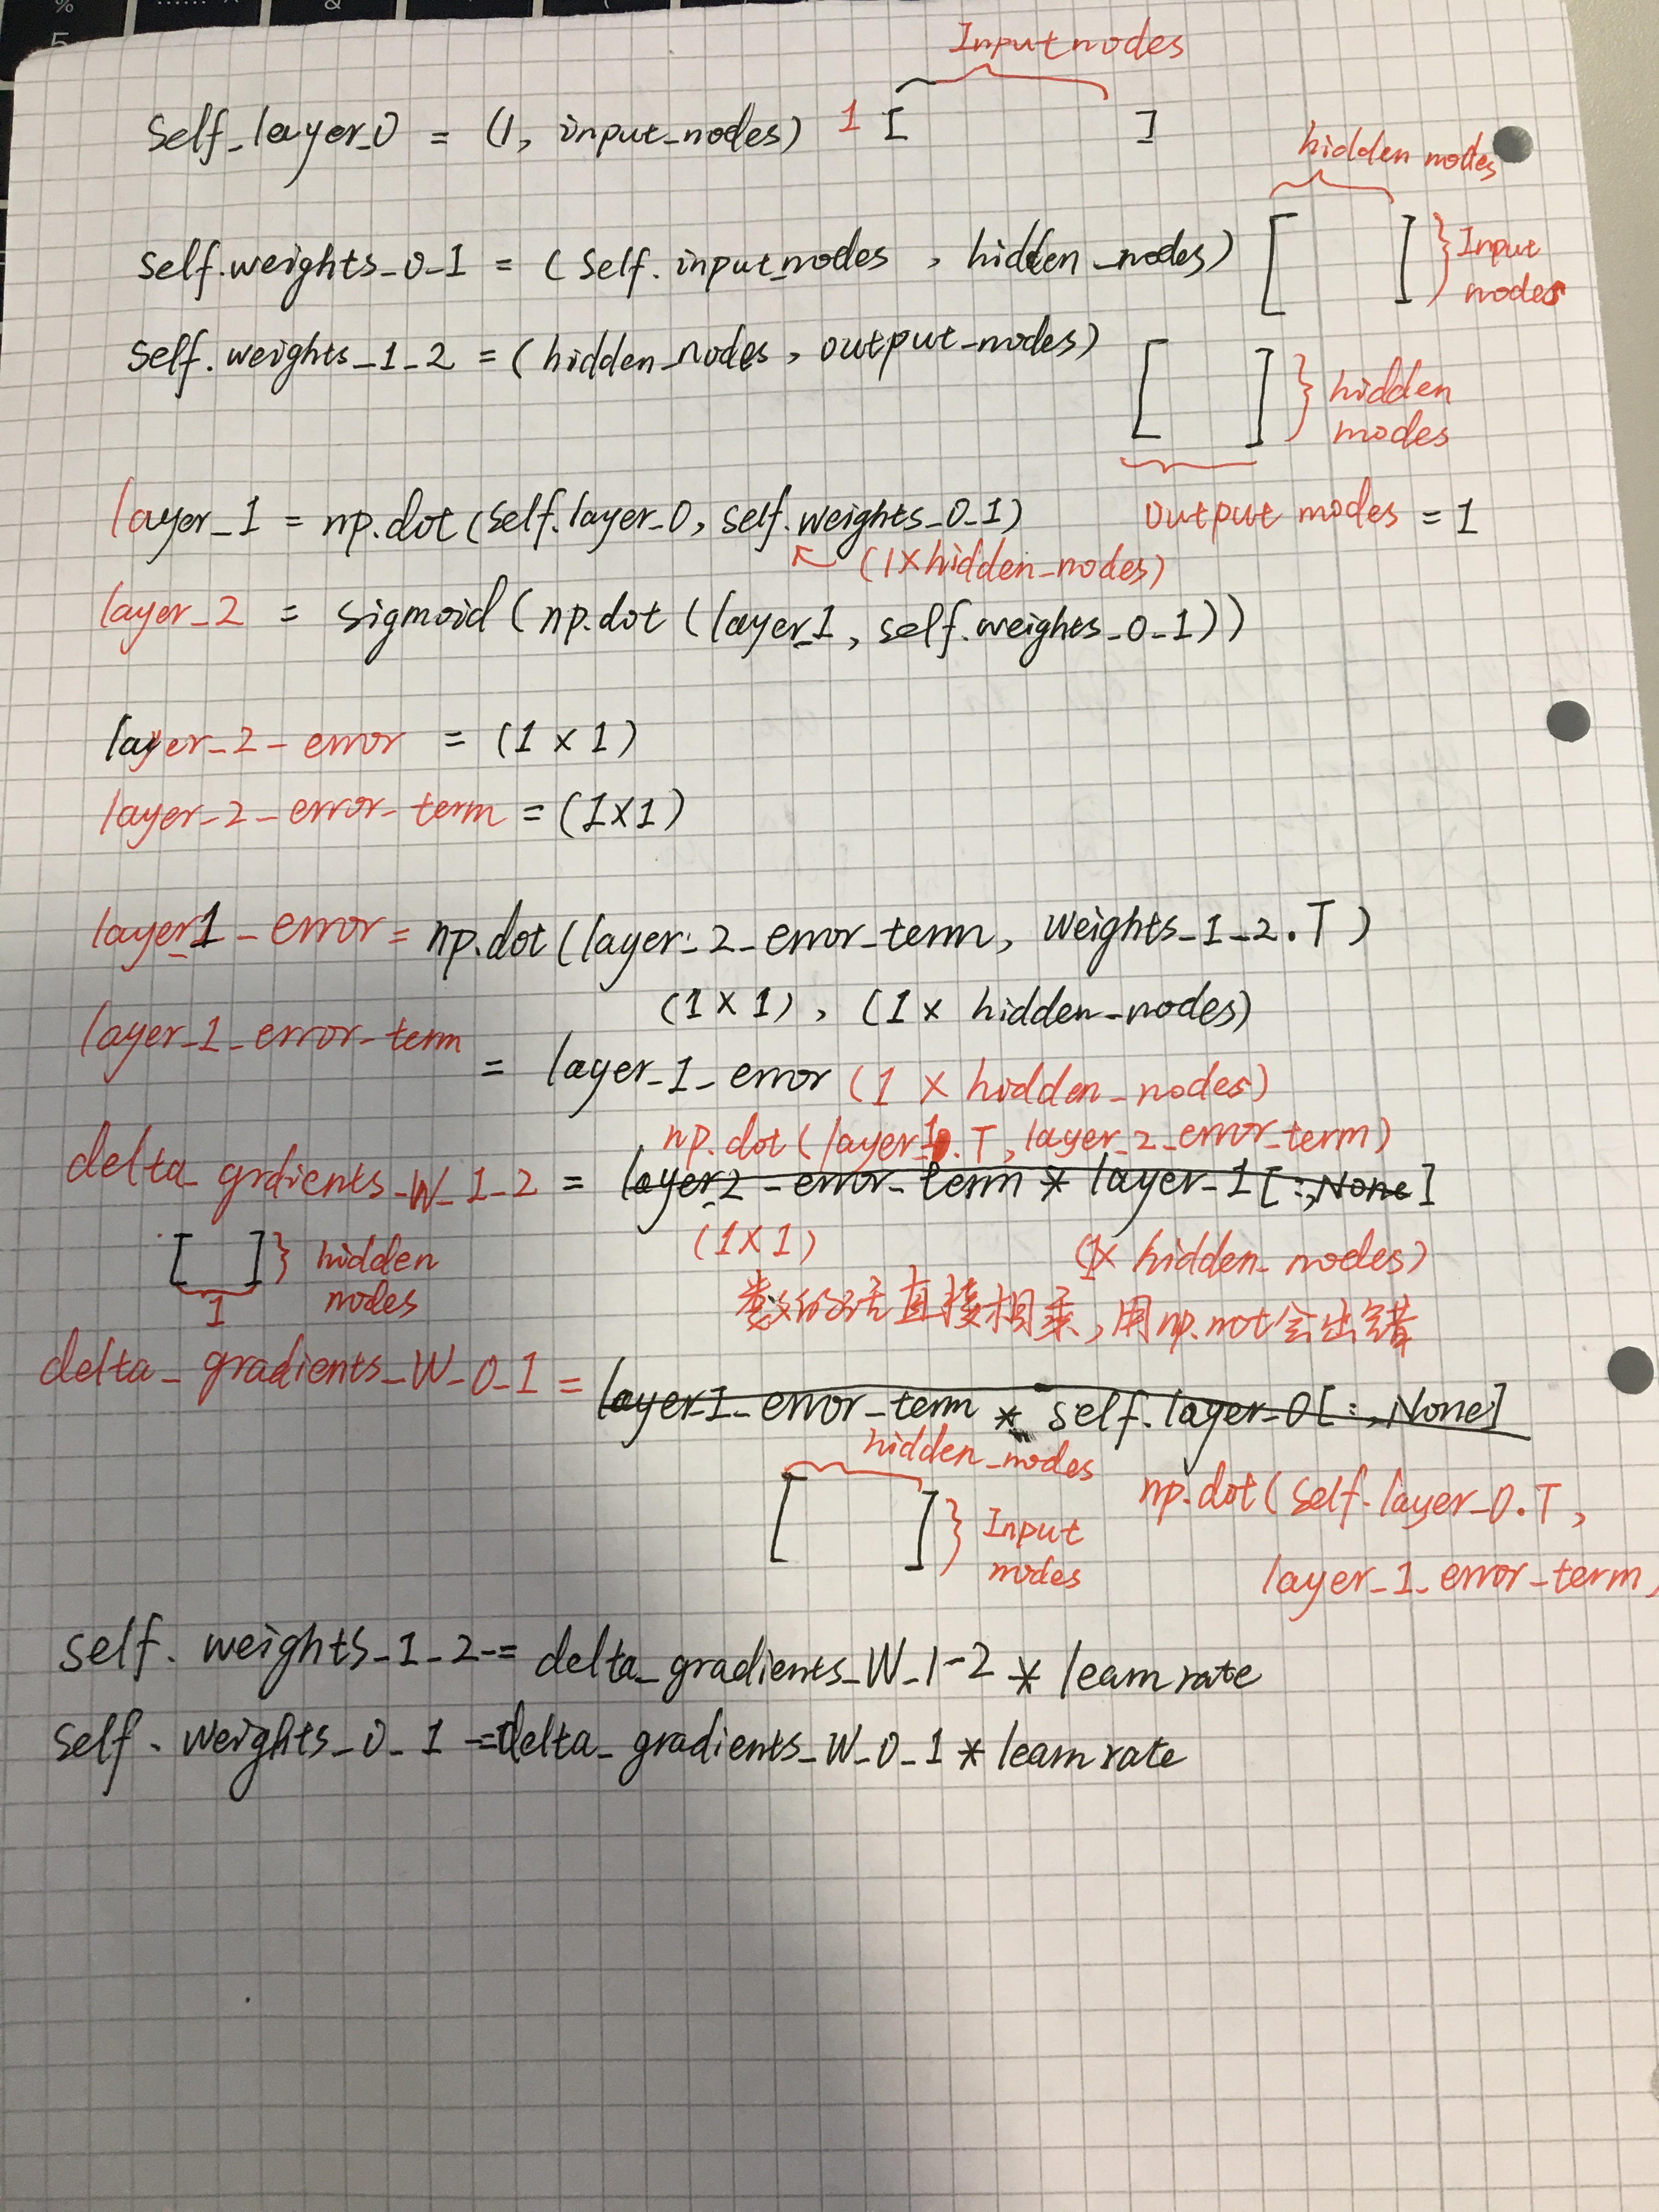 Input nodes
self_layer_0 = (1, input_nodes) 1 [ ]
hidden nodes
self.weights_0_1 = (self.input_nodes , hidden_nodes) [ ] } Input nodes
self.weights_1_2 = (hidden_nodes, output_nodes) [ ] } hidden nodes
layer_1 = np.dot(self.layer_0, self.weights_0_1) output nodes = 1
↖ (1×hidden_nodes)
layer_2 = sigmoid(np.dot(layer_1, self.weights_0_1))
layer_2_error = (1 × 1)
layer_2_error_term = (1×1)
layer_1_error = np.dot(layer_2_error_term, weights_1_2.T)
(1 × 1), (1× hidden_nodes)
layer_1_error_term = layer_1_error (1 × hidden_nodes)
np.dot(layer_1.T, layer_2_error_term)
delta_grdients_W_1_2 = layer_2_error_term * layer_1[:,None]
(1×1) (1× hidden_nodes)
[ ] } hidden nodes
1
数的话直接相乘,用np.not会出错
delta_gradients_W_0_1 = layer_1_error_term * self.layer_0[:,None]
hidden_nodes
[ ] } Input nodes
np.dot(self.layer_0.T,
layer_1_error_term)
self.weights_1_2 -= delta_gradients_W_1-2 * learn rate
self.weights_0_1 -= delta_gradients_W_0_1 * learn rate